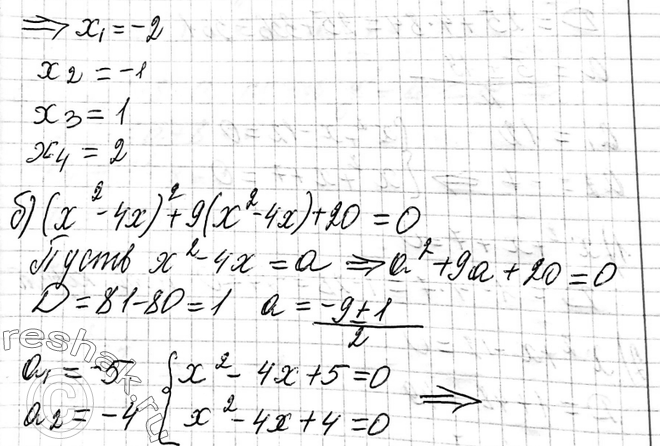 ⟹ x₁ = -2
x₂ = -1
x₃ = 1
x₄ = 2
б) (x² - 4x)² + 9(x² - 4x) + 20 = 0
Пусть x² - 4x = a ⟹ a² + 9a + 20 = 0
D = 81 - 80 = 1 a = (-9 ± 1)/2
a₁ = -5 { x² - 4x + 5 = 0
a₂ = -4 { x² - 4x + 4 = 0 ⟹
reshak.ru